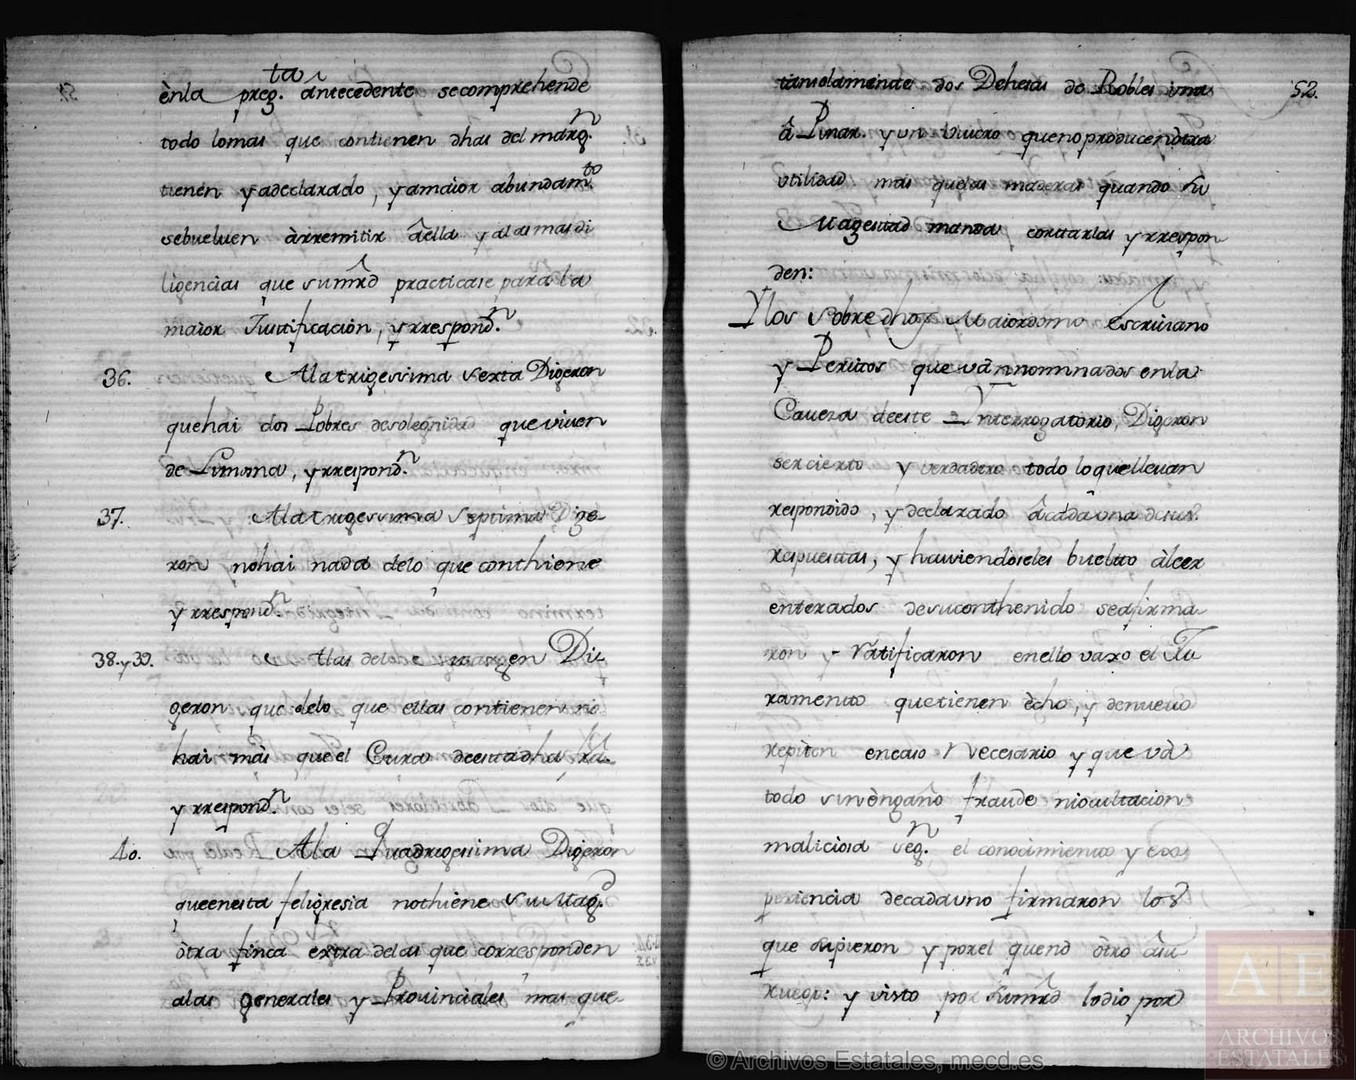 ènla preg.ta àntecedente secomprehende
todo lomas que contienen dhas del márg.n
tienen y àdeclarado, yamaior abundam.to
sebueluen àrremitir âella y alas mas di
ligencias que sumrd practicase para la
maior Justificacion, yrrespond.n
36. Ala trigessima sexta Digeron
quehai dos Pobres desolegnidad que viuen
de Limosna, yrrespond.n
37. Ala trigessima septima Dige-
ron nohai nada delo que conthiene
yrrespond.n
38. y 39. Alas delos margen Di-
geron que delo que ellas contienen no
hai más que el Cura deesta dha fra.
yrrespond.n
40. Ala Quadragessima Digeron
queenesta feligresia nothiene su Mag.d
òtra finca extra delas que corresponden
alas generales y Prouinciales mas que
52.
tansolamente dos Dehesas de Robles una
â Pinar. y un viuero quenoproducen òtra
vtilidad mas quelas maderas quando su
Magestad manda cortarlas yrrespon
den:
Ylos sobre dhos Maiordomo Escriuano
y Peritos que vàn nominados enla
Caueza deeste Ynterrogatorio, Digeron
sercierto y verdadero todo loquelleuan
respondido, y declarado âcada una desus
respuestas, y hauiendoseles buelto àleer
enterados desuconthenido seafirma
ron y ratificaron enello vaxo el Ju
ramento quetienen ècho, y denueuo
repiten encaso necesario y que và
todo sin èngaño fraude niocultacion
maliciosa seg.n el conocimiento y exs
periencia decadauno firmaron los
que supieron y porel quenò òtro àsu
ruego: y visto por sumrd lodio por
© Archivos Estatales, mecd.es
AE
ARCHIVOS
ESTATALES